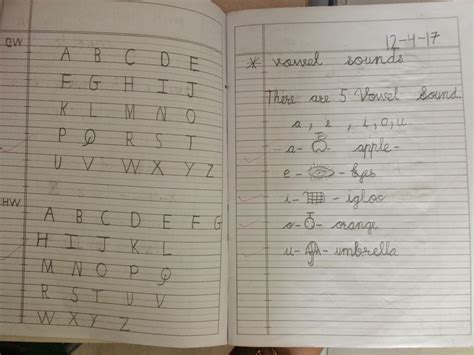 CW
A B C D E
F G H I J
K L M N O
P Q R S T
U V W X Y Z
HW
A B C D E F G
H I J K L
M N O P Q
R S T U V
W X Y Z
12-4-17
* vowel sounds
There are 5 Vowel Sound
a, e, i, o, u
-a- apple-
e - - Eyes
i- - igloo
o- - orange
u- - umbrella